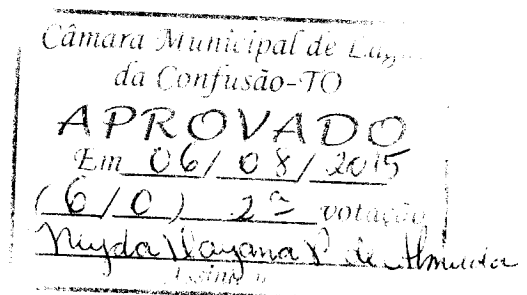 Câmara Municipal de
da Confusão-TO
APROVADO
Em 06/08/2015
(6/0) 2ª votação
de Almeida